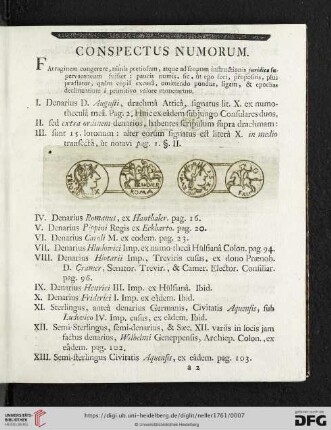 CONSPECTUS NUMORUM.
Farraginem congerere, nimis pretiosum, atque ad scopum instructionis juridicæ su-
pervacaneum fuisset: paucis numis, sic, ut ego feci, propositis, plus
præstatur, quàm copiâ eorum, omittendo pondus, ligam, & epochas
declinationis à primitivo valore numorum.
I. Denarius D. Augusti, drachmâ Atticâ, signatus lit. X. ex numo-
thecula mea. Pag. 2. Hinc ex eâdem subjungo Consulares duos,
II. sed extra ordinem denarios, habentes scripulum supra drachmam:
III. sunt 15. lotonum: alter eorum signatus est literâ X. in medio
transectâ, ut notavi pag. 1. §. II.
ROMA
IV. Denarius Romanus, ex Hanthaler. pag. 16.
V. Denarius Pipini Regis ex Eckharto. pag. 20.
VI. Denarius Caroli M. ex eodem. pag. 23.
VII. Denarius Hludovici Imp. ex numothecâ Hülsianâ Colon. pag. 94.
VIII. Denarius Hlotarii Imp., Treviris cusus, ex dono Prænob.
D. Cramer, Senator. Trevir., & Camer. Elector. Consiliar.
pag. 96.
IX. Denarius Henrici III. Imp. ex Hülsianâ. Ibid.
X. Denarius Friderici I. Imp. ex eâdem. Ibid.
XI. Sterlingus, anteà denarius Germanis, Civitatis Aquensis, sub
Ludovico IV. Imp. cusus, ex eâdem. Ibid.
XII. Semi-Sterlingus, semi-denarius, & Sæc. XII. variis in locis jam
factus denarius, Wolhelmi Geneppensis, Archiep. Colon., ex
eâdem. pag. 102.
XIII. Semi-sterlingus Civitatis Aquensis, ex eâdem. pag. 103.
a 2
UNIVERSITÄTS-
BIBLIOTHEK
HEIDELBERG
https://digi.ub.uni-heidelberg.de/diglit/neller1761/0007
© Universitätsbibliothek Heidelberg
gefördert durch die
DFG